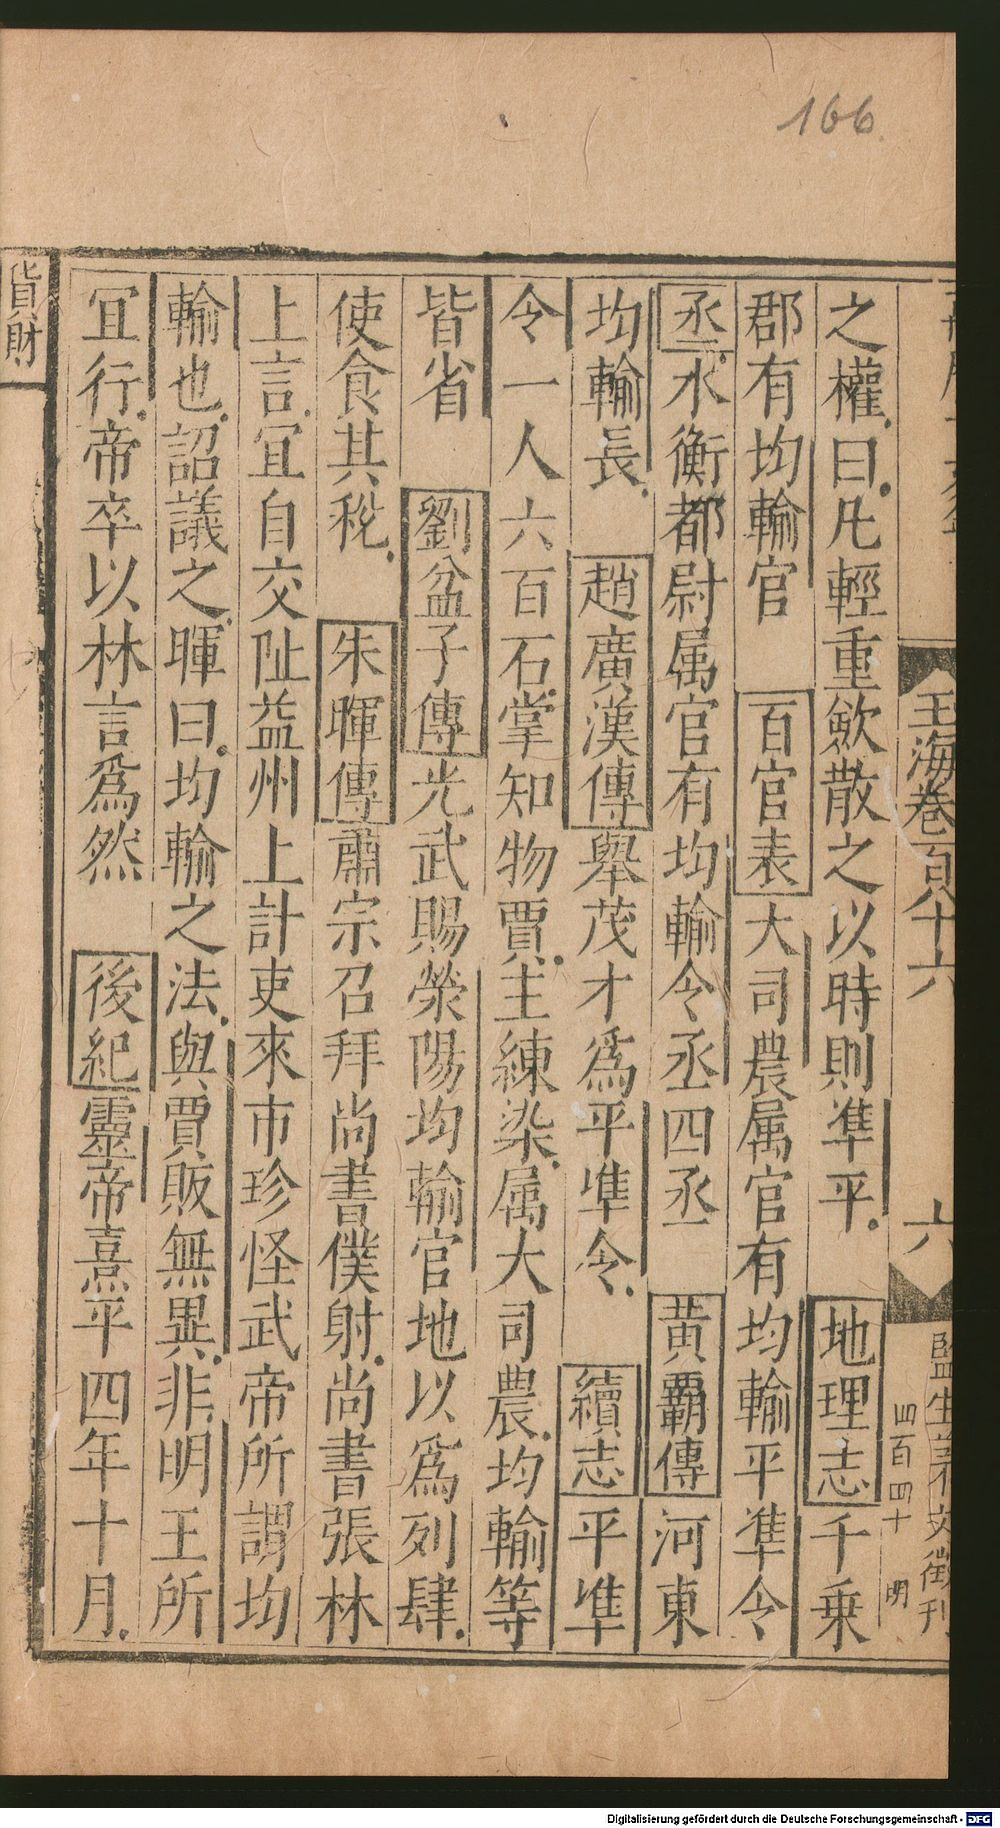 166
玉海卷百八十六
六
四百四十
明
之權曰凡輕重斂散之以時則準平地理志千乗
郡有均輸官百官表大司農属官有均輸平準令
丞水衡都尉属官有均輸令丞四丞黃霸傳河東
均輸長趙廣漢傳舉茂才爲平準令續志平準
令一人六百石掌知物賈主練染属大司農均輸等
皆省劉盆子傳光武賜滎陽均輸官地以爲列肆
使食其稅朱暉傳肅宗召拜尚書僕射尚書張林
上言宜自交阯益州上計吏來市珍怪武帝所謂均
輸也詔議之暉曰均輸之法與賈販無異非明王所
宜行帝卒以林言爲然後紀靈帝熹平四年十月
貨財
Digitalisierung gefördert durch die Deutsche Forschungsgemeinschaft - DFG